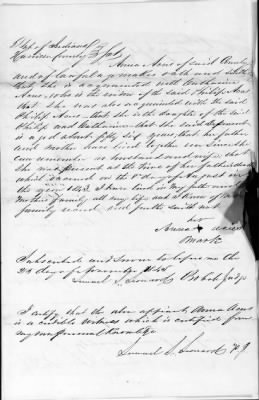 State of Indiana
Harrison County } Sct
Anna Aens of said County
and of lawful age makes oath and saith
that she is acquainted with Catharine
Aens, who is the widow of the said Philip Aens
that she was also acquainted with the said
Philip Aens, that she is the daughter of the said
Philip and Catharine that the said deponent
is aged about fifty six years, that her father
and mother have lived together ever since she
can remember as husband and wife, that
she was present at the time of her father's death
which occurred on the 8 day of August in
the year 1843. I have lived in my father and
mother's family all my life and
family record, and further saith not
her
Anna X Aens
mark
Subscribed and Sworn to before me this
24 day of November 1844
Samuel J. Leonard Probate Judge
I certify that the above affiant, Anna Aens
is a credible witness which is certified from
my own personal knowledge
Samuel J. Leonard P J